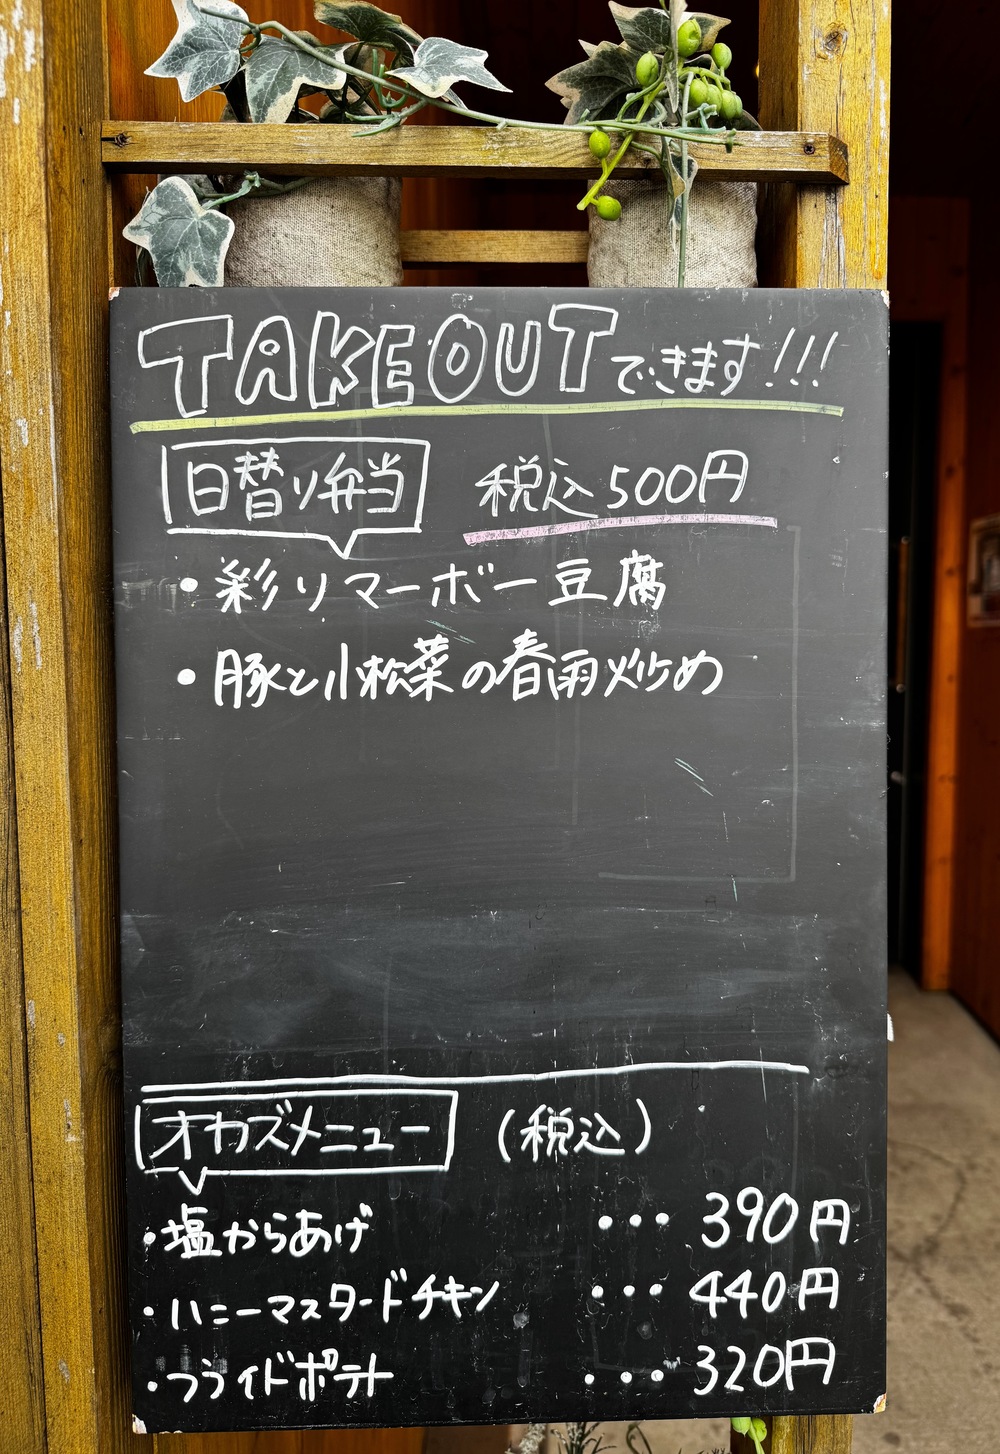 TAKEOUTできます!!!
日替り弁当 税込500円
・彩りマーボー豆腐
・豚と小松菜の春雨炒め
オカズメニュー (税込)
・塩からあげ ・・・390円
・ハニーマスタードチキン ・・・440円
・フライドポテト ・・・320円